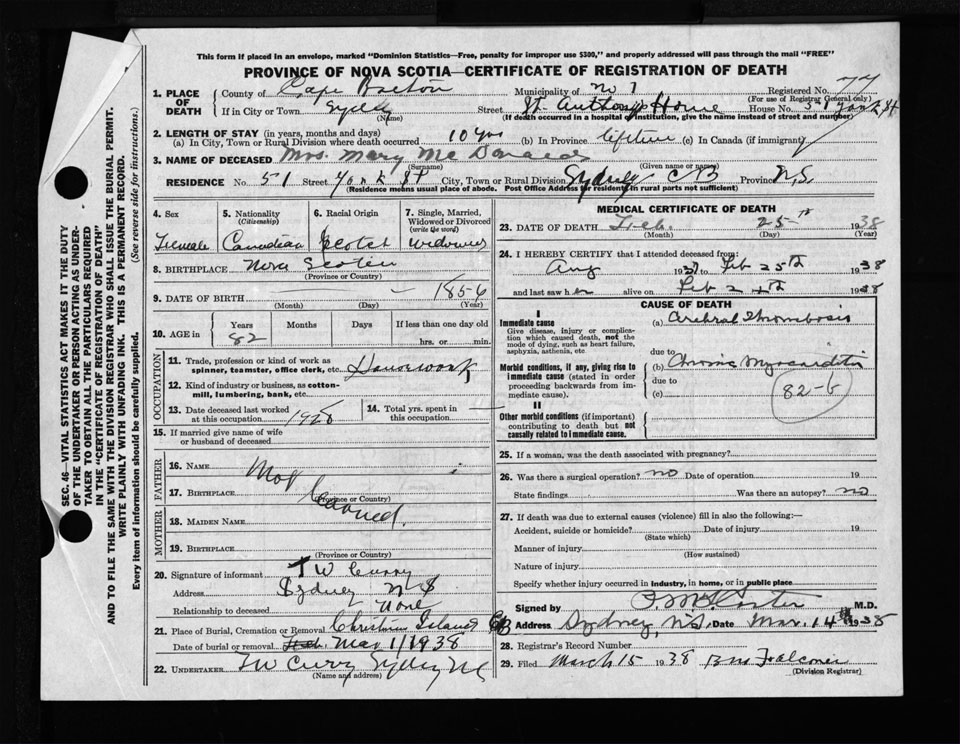 This form if placed in an envelope, marked "Dominion Statistics—Free, penalty for improper use $300," and properly addressed will pass through the mail "FREE"
PROVINCE OF NOVA SCOTIA—CERTIFICATE OF REGISTRATION OF DEATH
1. PLACE OF DEATH County of Cape Breton Municipality of No 1 Registered No. 77
(For use of Registrar General only)
If in City or Town Sydney Street St. Anthony Home House No. 51 York St
(Name) (If death occurred in a hospital or institution, give the name instead of street and number)
2. LENGTH OF STAY (in years, months and days)
(a) In City, Town or Rural Division where death occurred 10 yrs (b) In Province lifetime (c) In Canada (if immigrant)
3. NAME OF DECEASED Mrs. Mary McDonald
(Surname) (Given name or names)
RESIDENCE No. 51 Street York St City, Town or Rural Division Sydney CB Province N.S.
(Residence means usual place of abode. Post Office Address for residents in rural parts not sufficient)
4. Sex
Female
5. Nationality
(Citizenship)
Canadian
6. Racial Origin
Scotch
7. Single, Married, Widowed or Divorced
(write the word)
widowed
8. BIRTHPLACE Nova Scotia
(Province or Country)
9. DATE OF BIRTH — 1856
(Month) (Day) (Year)
10. AGE in Years Months Days If less than one day old
82 hrs. or min.
OCCUPATION
11. Trade, profession or kind of work as spinner, teamster, office clerk, etc. Housework
12. Kind of industry or business, as cotton-mill, lumbering, bank, etc.
13. Date deceased last worked at this occupation 1928
14. Total yrs. spent in this occupation —
15. If married give name of wife or husband of deceased
FATHER
16. NAME
17. BIRTHPLACE
(Province or Country)
Not
MOTHER
18. MAIDEN NAME
19. BIRTHPLACE
(Province or Country)
20. Signature of informant T W Curry
Address Sydney N S
Relationship to deceased None
21. Place of Burial, Cremation or Removal Christmas Island CB
Date of burial or removal Mar 1/1938
22. Undertaker TW Curry Sydney NS
(Name and address)
MEDICAL CERTIFICATE OF DEATH
23. DATE OF DEATH Feb. 25th 1938
(Month) (Day) (Year)
24. I HEREBY CERTIFY that I attended deceased from:
Aug 1937 to Feb 25th 1938
and last saw her alive on Feb 24th 1938
CAUSE OF DEATH
I
Immediate cause (a) Cerebral Thrombosis
Give disease, injury or complication which caused death, not the mode of dying, such as heart failure, asphyxia, asthenia, etc.
due to
Morbid conditions, if any, giving rise to immediate cause (stated in order proceeding backwards from immediate cause). (b) Chronic Myocarditis
due to
(c)
82-b
II
Other morbid conditions (if important) contributing to death but not causally related to immediate cause.
25. If a woman, was the death associated with pregnancy?
26. Was there a surgical operation? no Date of operation 19
State findings Was there an autopsy? no
27. If death was due to external causes (violence) fill in also the following:—
Accident, suicide or homicide? Date of injury 19
(State which)
Manner of injury
(How sustained)
Nature of injury
Specify whether injury occurred in industry, in home, or in public place
Signed by M.D.
Address Sydney, N.S. Date Mar. 14th 1938
28. Registrar's Record Number
29. Filed March 15 1938 Falconer
(Division Registrar)
SEC. 46—VITAL STATISTICS ACT MAKES IT THE DUTY
OF THE UNDERTAKER OR PERSON ACTING AS UNDERTAKER
TO OBTAIN ALL THE PARTICULARS REQUIRED
IN THE "CERTIFICATE OF REGISTRATION OF DEATH"
AND TO FILE THE SAME WITH THE DIVISION REGISTRAR WHO SHALL ISSUE THE BURIAL PERMIT.
WRITE PLAINLY WITH UNFADING INK. THIS IS A PERMANENT RECORD.
Every item of information should be carefully supplied. (See reverse side for instructions.)